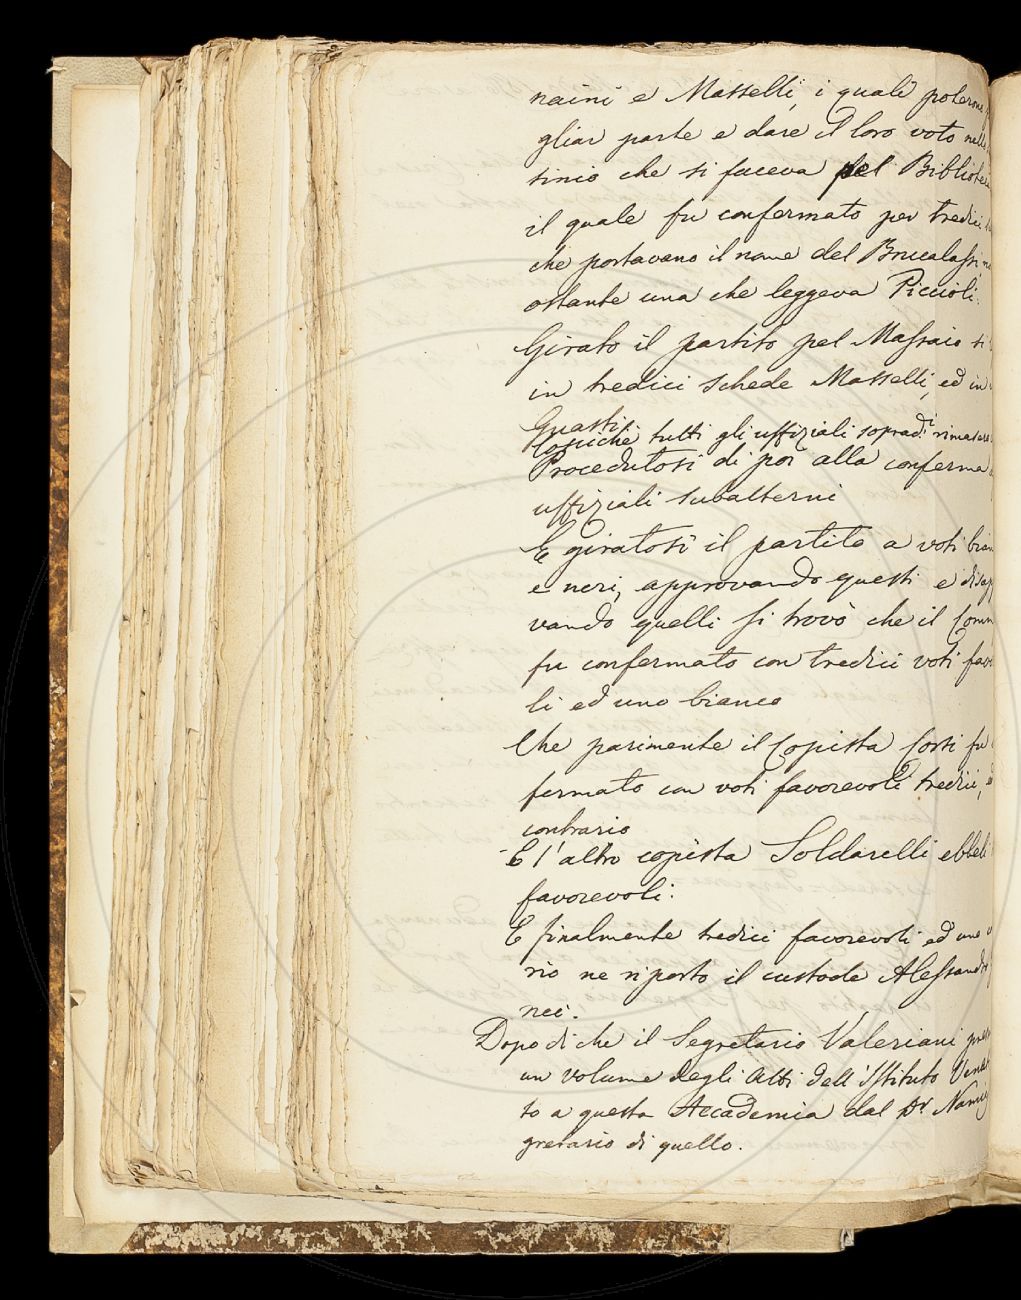 naini e Masselli, i quali poterono
gliar parte e dare il loro voto nello
tinio che si faceva pel Bibliote
il quale fu confermato per tredici
che portavano il nome del Brucalassi,
ostante una che leggeva Piccioli.
Girato il partito pel Massaio si
in tredici schede Masselli, ed in
Guasti.
Cosicchè tutti gli uffiziali sopradi rimasero
Procedutosi di poi alla conferma
uffiziali subalterni
E giratosi il partito a voti bian
e neri, approvando questi e disap
vando quelli si trovò che il Comm
fu confermato con tredici voti favo
li ed uno bianco
Che parimente il Copista Corsi fu
fermato con voti favorevoli tredici,
contrario
E l'altro copista Soldarelli ebbeli
favorevoli.
E finalmente tredici favorevoli ed uno
rio ne riportò il custode Alessandro
nei.
Dopo di che il Segretario Valeriani pres
un volume degli Atti dell'Istituto Vene
to a questa Accademia dal Dr Nami
gretario di quello.